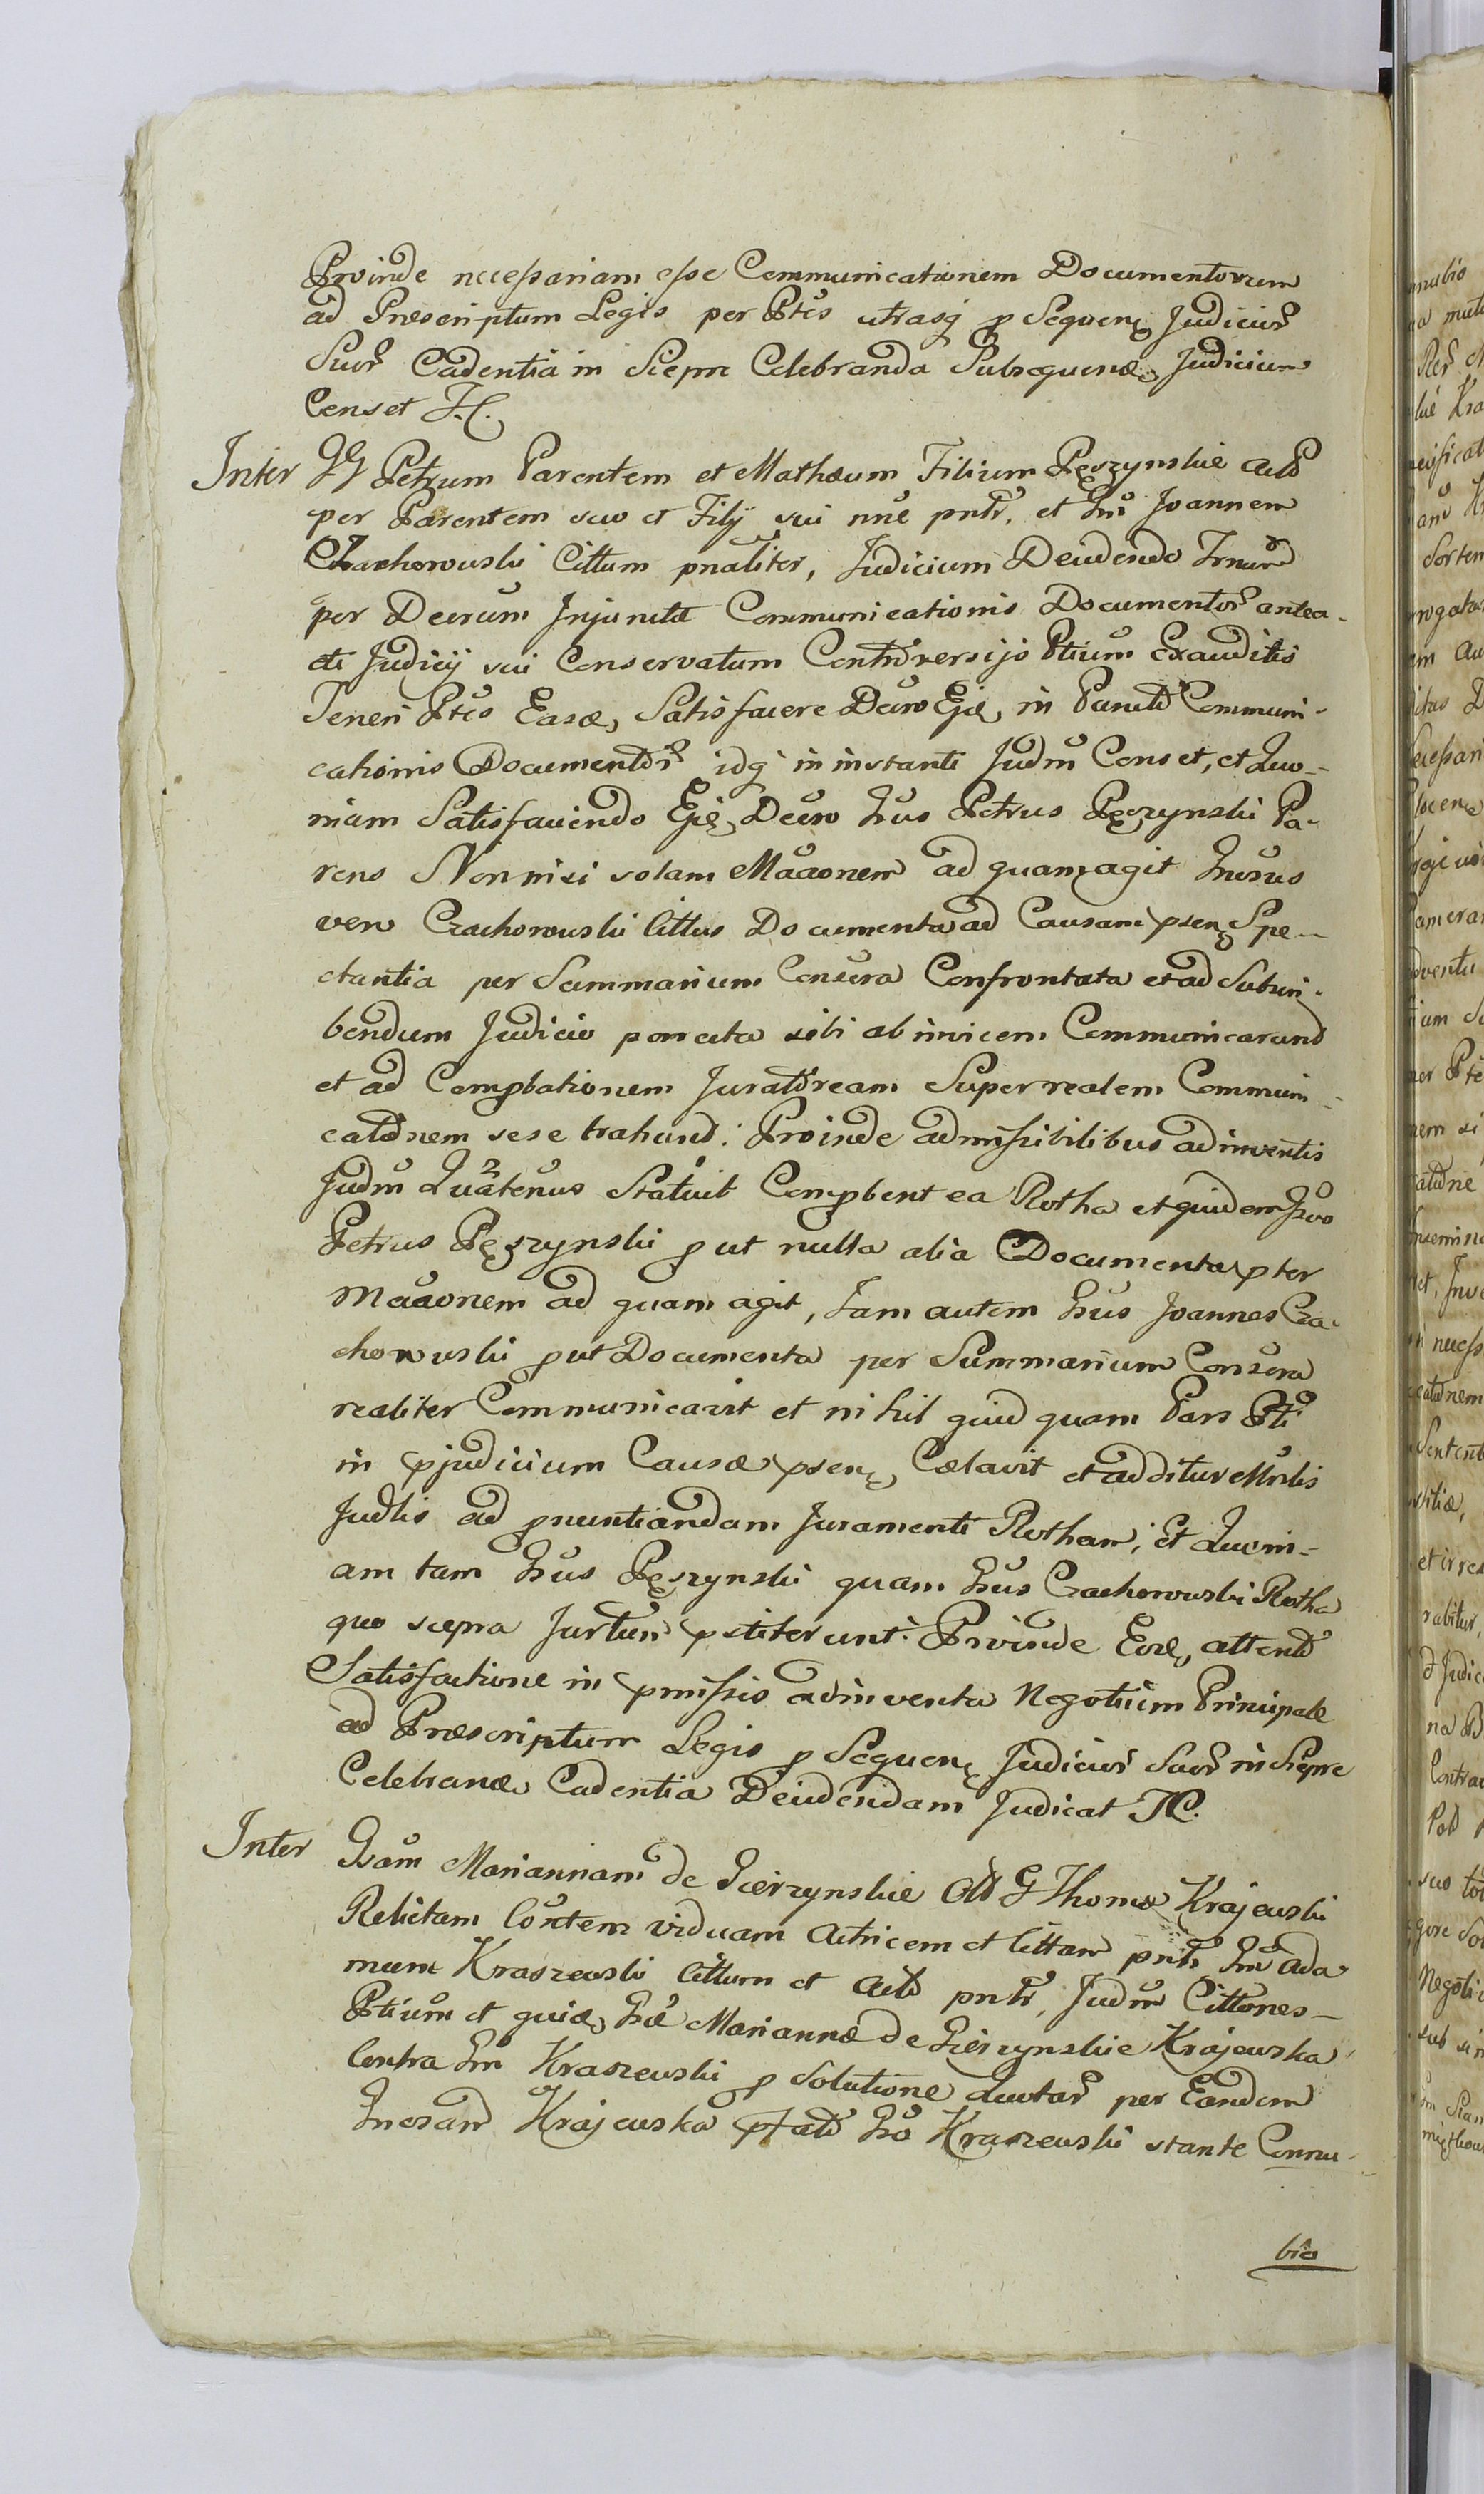 Proinde necessariam esse Communicationem Documentorum
ad Prescriptum Legis per Ptes utrasq p Sequen Judicior
Suor Cadentia in Sierpc Celebranda Subsequen Judicium
Censet H.
Inter GG Petrum Parentem et Mathæum Filium Pęszynskie Act
per Parentem suo et Filij sui nne pntr, et Gm Joannem
Czachorowski Cittum pnaliter, Judicium Decidendo Trnum
per Decrum Injunctæ Communicationis Documentor antea-
cti Judicij sui Conservatum Controversijs Ptium Exauditis
Teneri Ptes Easd, Satisfacere Decro Ejd, in Puncto Communi-
cationis Documentor idq in instanti Judm Censet, et Quo-
niam Satisfaciendo Ejd, Decro Gsus Petrus Pęszynski Pa-
rens Non nisi solam Maaonem ad quam agit Gnosus
vero Czachorowski Cittus Documenta ad Causam psen Spe-
ctantia per Summarium Conscra Confrontata et ad Subscri-
bendum Judicio porrecta sibi ab invicem Communicarunt
et ad Comprbationem Juratoream Super realem Communi-
cationem sese trahunt. Proinde admissibilibus adinventis
Judm Quatenus Statuit Comprbent ea Rotha et quidem Gsus
Petrus Pęszynski p ut nulla alia Documenta pter
Maaonem ad quam agit, Tam autem Gsus Joannes Cza-
chorowski p ut Documenta per Summarium Conscra
realiter Communicavit et nihil quid quam Pars Pti
in pjudicium Causæ psen, Cælavit et additur Mrlis
Judlis ad pnuntiandam Juramenti Rotham, et Quoni-
am tam Gsus Pęszynski quam Gsus Czachorowski Rotha
quo supra Jurtum pstiterunt. Proinde Eor, attento
Satisfactione in pmissis adinventa Negotium Principale
ad Præscriptum Legis p Sequen Judicior Suor in Sierpc
Celebran Cadentia Decidendam Judicat H.
Inter Gsam Mariannam de Gierzynskie Olt G Thomæ Krajewski
Relictam Contem viduam Actricem et Cittam pntr Gm Ada
mum Kraszewski Cittum et Act pntr, Judm Cittones
Ptium et quia, Gsæ Mariannæ de Gierzynskie Krajewska
Contra Gm Kraszewski p Solutione Quotar per Eandem
Gnosam Krajewska Gso Kraszewski stante Connu-
bio